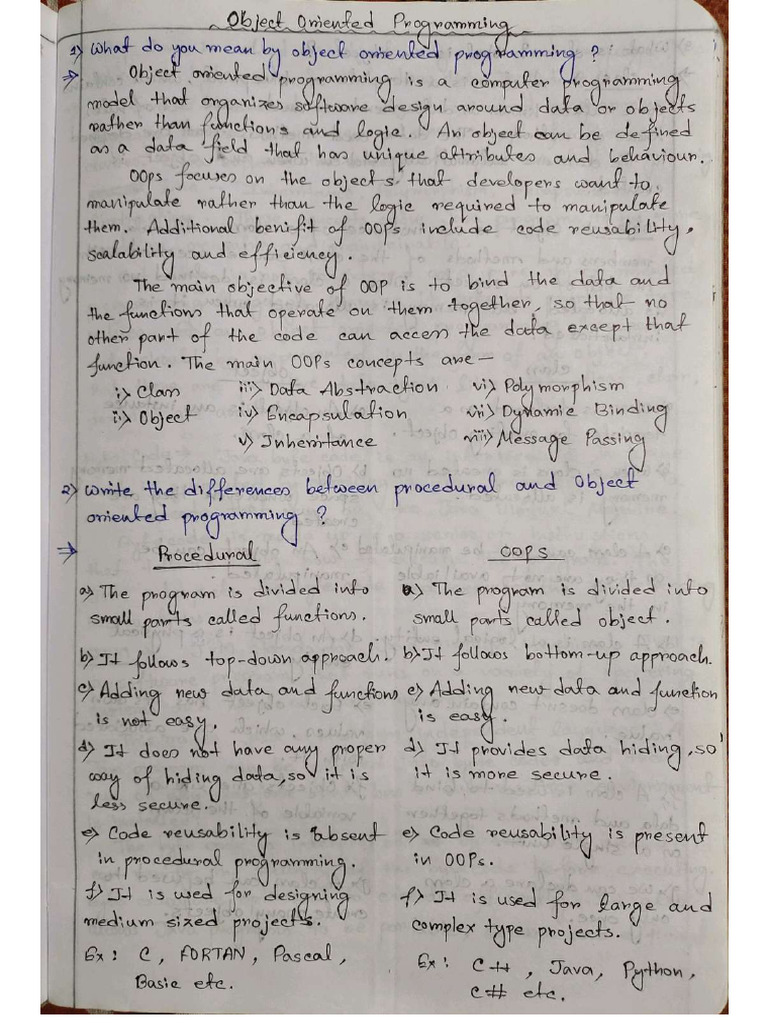 Object Oriented Programming
1) What do you mean by object oriented programming ?
⇒ Object oriented programming is a computer programming
model that organizes software design around data or objects
rather than functions and logic. An object can be defined
as a data field that has unique attributes and behaviour.
OOps focuses on the objects that developers want to
manipulate rather than the logic required to manipulate
them. Additional benifit of OOPs include code reusability,
scalability and efficiency.
The main objective of OOP is to bind the data and
the functions that operate on them together, so that no
other part of the code can access the data except that
function. The main OOPs concepts are—
i) Class iii) Data Abstraction vi) Polymorphism
ii) Object iv) Encapsulation vii) Dynamic Binding
v) Inheritance viii) Message Passing
2) Write the differences between procedural and Object
oriented programming ?
⇒ Procedural
a) The program is divided into
small parts called functions.
b) It follows top-down approach.
c) Adding new data and functions
is not easy.
d) It does not have any proper
way of hiding data, so it is
less secure.
e) Code reusability is absent
in procedural programming.
f) It is used for designing
medium sized projects.
Ex: C, FORTAN, Pascal,
Basic etc.
OOPS
a) The program is divided into
small parts called object.
b) It follows bottom-up approach.
c) Adding new data and function
is easy.
d) It provides data hiding, so
it is more secure.
e) Code reusability is present
in OOPs.
f) It is used for large and
complex type projects.
Ex: C++, Java, Python,
C# etc.